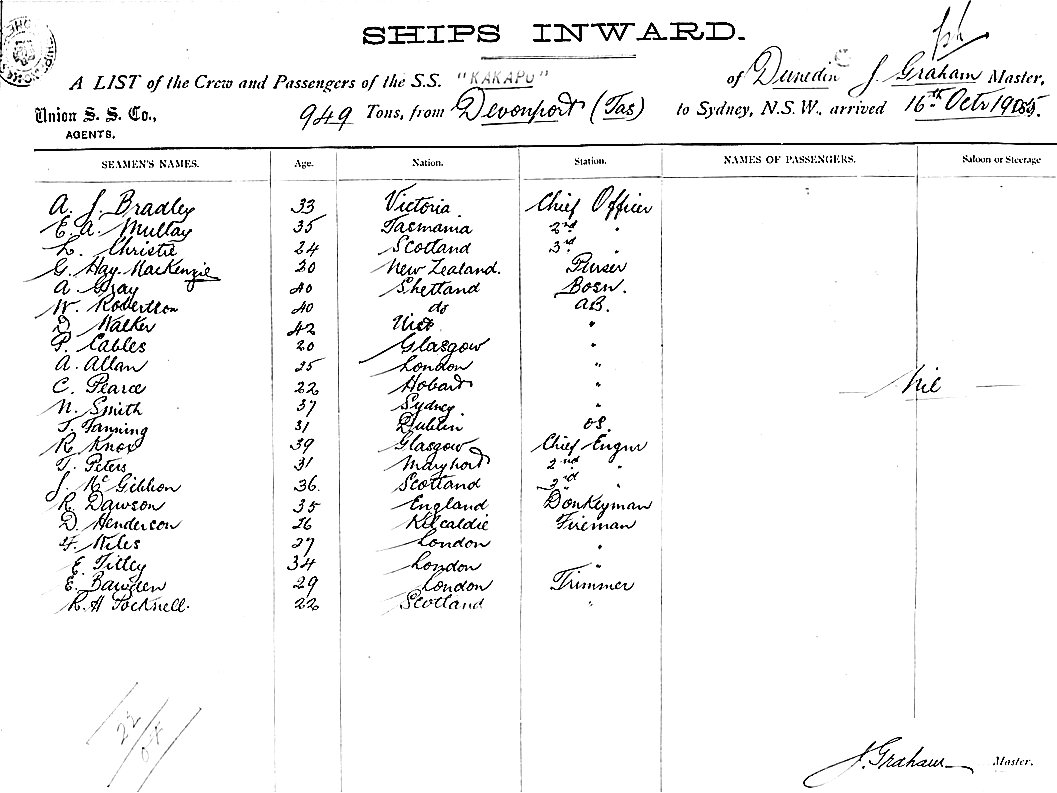 SHIPS INWARD.
A LIST of the Crew and Passengers of the S.S. "KAKAPO" of Dunedin J. Graham Master,
Union S. S. Co., AGENTS. 949 Tons, from Devonport (Tas) to Sydney, N.S.W., arrived 16th Octr 1905.
SEAMEN'S NAMES. Age. Nation. Station. NAMES OF PASSENGERS. Saloon or Steerage
A. J. Bradley 33 Victoria Chief Officer
E. A. Mullay 35 Tasmania 2nd "
L. Christie 24 Scotland 3rd "
G. Hay. MacKenzie 20 New Zealand. Purser
A Gray 40 Shetland Bosn.
W. Robertson 40 do AB.
D Walker 42 Vict "
P. Cables 20 Glasgow "
A. Allan 25 London "
C. Pearce 22 Hobart " Nil
N. Smith 37 Sydney "
T. Fanning 31 Dublin OS.
R Knox 39 Glasgow Chief Engnr
T. Peters 31 Maryport 2nd "
J. McGibbon 36. Scotland 3rd "
R. Dawson 35 England Donkeyman
D. Henderson 26 Kilcaldie Fireman
27 London "
E. Tilley 34 London "
E. Bawden 29 London Trimmer
R. H Pocknell. 22 Scotland "
22
J. Graham Master.